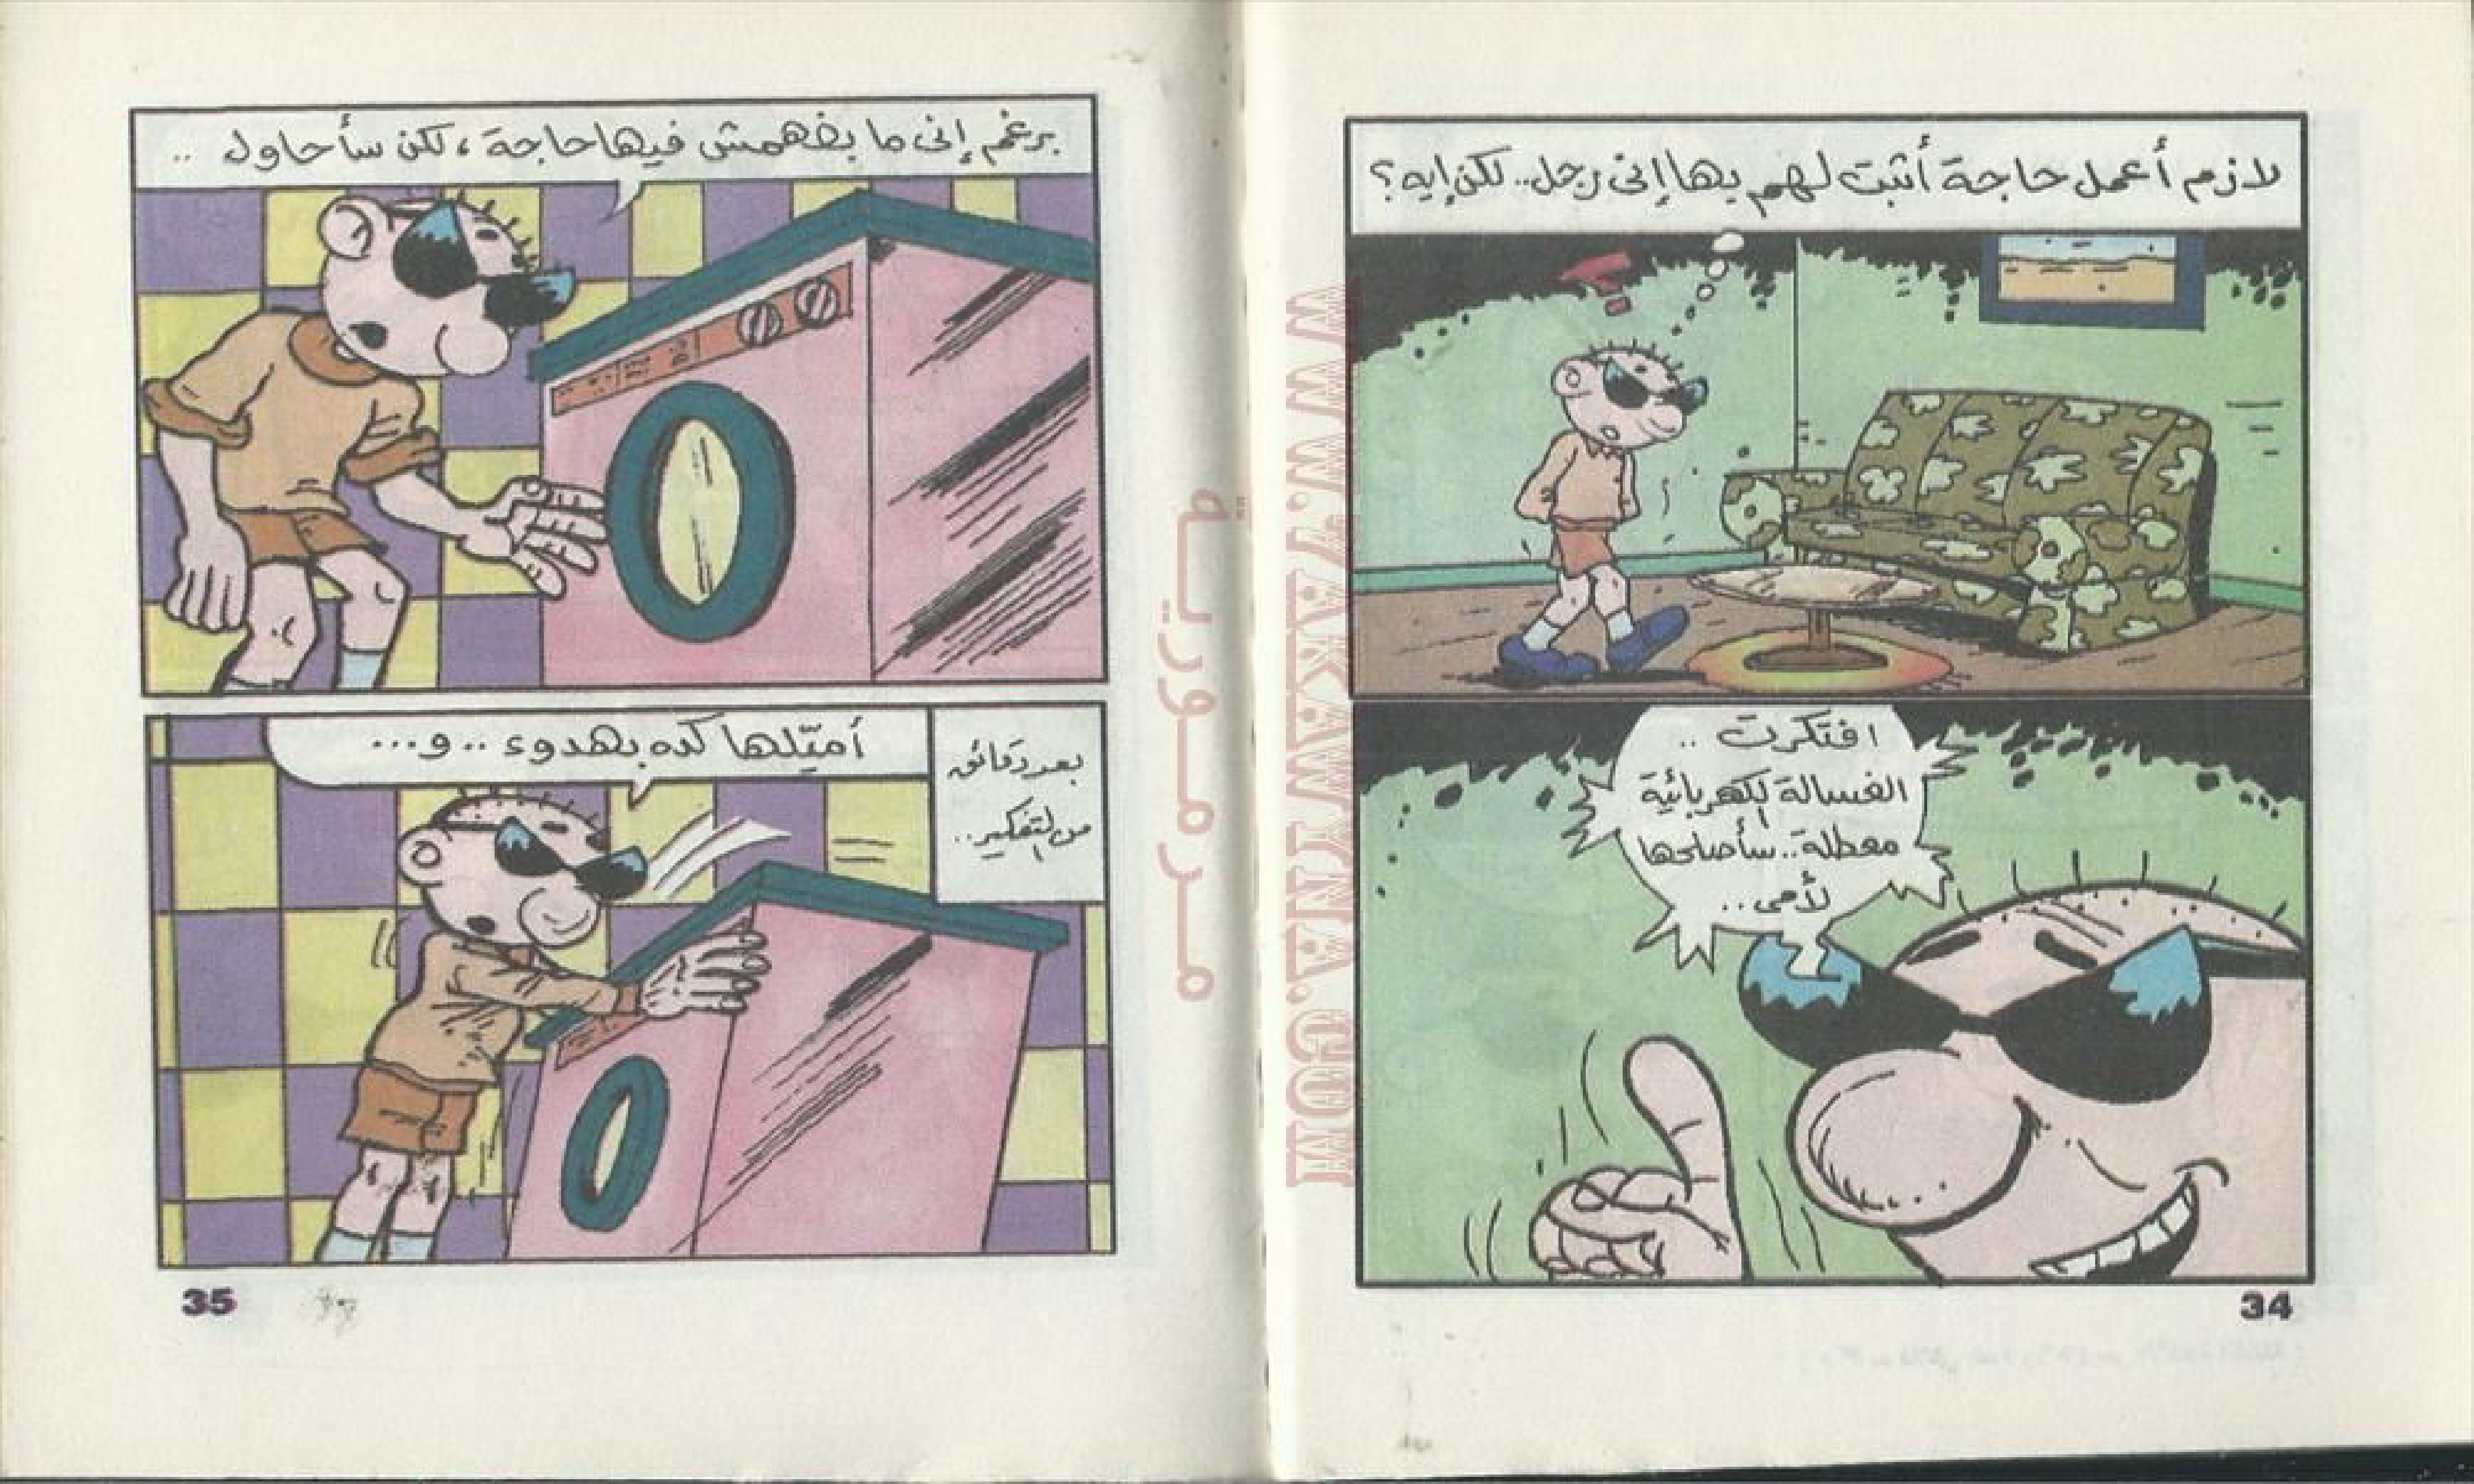 لازم أعمل حاجة أثبت لهم بها إنى رجل.. لكن إيه؟
افتكرت ..
الغسالة الكهربائية
معطلة.. سأصلحها
لأمى..
34
برغم إنى ما بفهمش فيها حاجة، لكن سأحاول ..
بعد دقائق
من التفكير..
أميّلها كده بهدوء .. و...
35
مرمورية
WWW.ZAKAWINA.COM